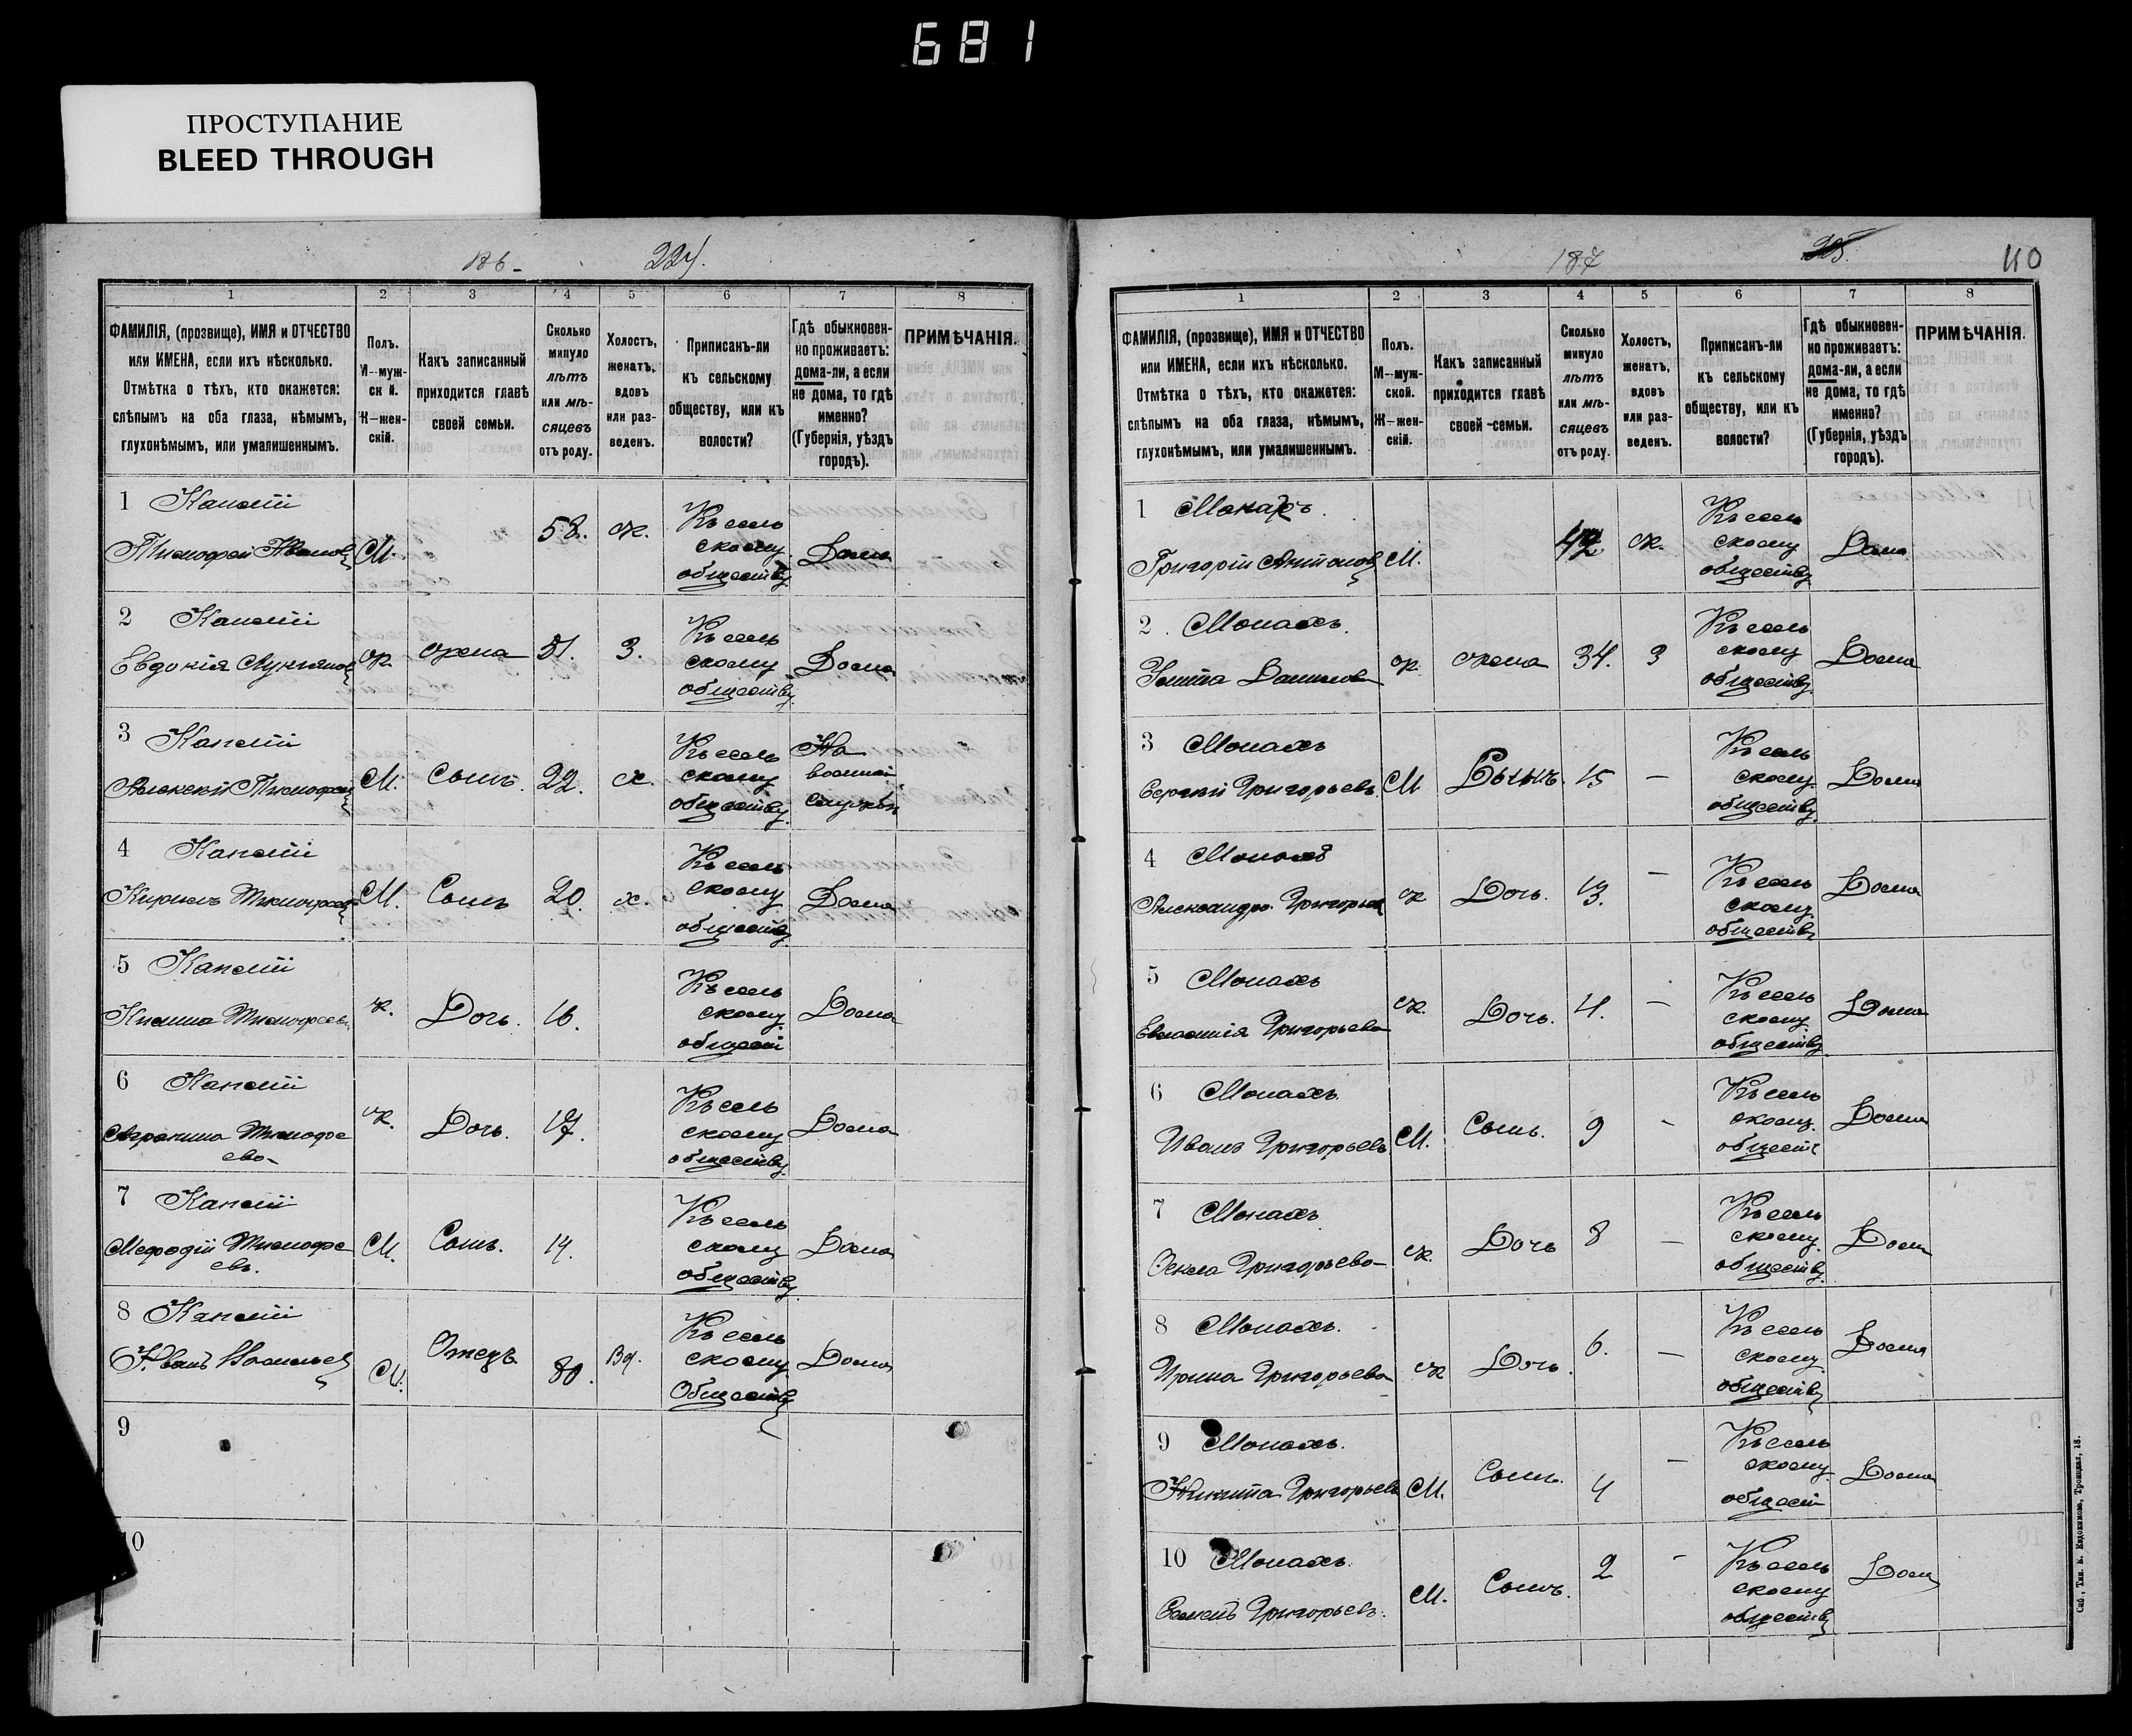 681
ПРОСТУПАНИЕ
BLEED THROUGH
186 224.
1 2 3 4 5 6 7 8
ФАМИЛІЯ, (прозвище), ИМЯ и ОТЧЕСТВО или ИМЕНА, если ихъ нѣсколько. Отмѣтка о тѣхъ, кто окажется: слѣпымъ на оба глаза, нѣмымъ, глухонѣмымъ, или умалишеннымъ.
Полъ. М—мужской. Ж—женскій.
Какъ записанный приходится главѣ своей семьи.
Сколько минуло лѣтъ или мѣсяцевъ отъ роду.
Холостъ, женатъ, вдовъ или разведенъ.
Приписанъ-ли къ сельскому обществу, или къ волости?
Гдѣ обыкновенно проживаетъ: дома-ли, а если не дома, то гдѣ именно? (Губернія, уѣздъ городъ).
ПРИМѢЧАНІЯ.
1 Тимофей Иванов М. 58. ж. Къ сельскому обществу Дома
2 Евдокія Лукьянов ж жена 51. З. Къ сельскому обществу Дома
3 Алексѣй Тимофеев М. Сынъ 22. х. Къ сельскому обществу На военной службѣ
4 Кирилъ Тимофеев М. Сынъ 20. х. Къ сельскому обществу Дома
5 Тимофеев ж. Дочь. 16. Къ сельскому общест Дома
6 Агрипина Тимофеева ж. Дочь. 17. Къ сельскому обществу Дома
7 Мефодій Тимофеевъ. М. Сынъ. 14. Къ сельскому обществу Дома
8 Иванъ Васильев М. Отецъ 80. Вд. Къ сельскому Обществу Дома
9
10
187 110
1 2 3 4 5 6 7 8
ФАМИЛІЯ, (прозвище), ИМЯ и ОТЧЕСТВО или ИМЕНА, если ихъ нѣсколько. Отмѣтка о тѣхъ, кто окажется: слѣпымъ на оба глаза, нѣмымъ, глухонѣмымъ, или умалишеннымъ.
Полъ. М—мужской. Ж—женскій.
Какъ записанный приходится главѣ своей семьи.
Сколько минуло лѣтъ или мѣсяцевъ отъ роду.
Холостъ, женатъ, вдовъ или разведенъ.
Приписанъ-ли къ сельскому обществу, или къ волости?
Гдѣ обыкновенно проживаетъ: дома-ли, а если не дома, то гдѣ именно? (Губернія, уѣздъ городъ).
ПРИМѢЧАНІЯ.
1 Монахъ. Григорій Антонов М. ж. Къ сельскому обществу Дома
2 Монахъ. ж. жена 34. З Къ сельскому обществу Дома
3 Монахъ Сергѣй Григорьевъ М Сынъ 15 — Къ сельскому обществу Дома
4 Монахъ Александра Григорьев ж Дочь. 13. — Къ сельскому обществу Дома
5 Монахъ Григорьева ж. Дочь. 11. — Къ сельскому обществу Дома
6 Монахъ. Иванъ Григорьевъ М. Сынъ. 9 - Къ сельскому общест Дома
7 Монахъ Григорьева ж. Дочь 8 — Къ сельскому обществу Дома
8 Монахъ. Ирина Григорьева ж Дочь. 6. — Къ сельскому обществу Дома
9 Монахъ. Никита Григорьевъ М. Сынъ. 4 — Къ сельскому общест Дома
10 Монахъ. Семенъ Григорьевъ. М. Сынъ. 2 - Къ сельскому обществу Дом
Спб., Тип. Е. Евдокимова, Троицкая, 18.